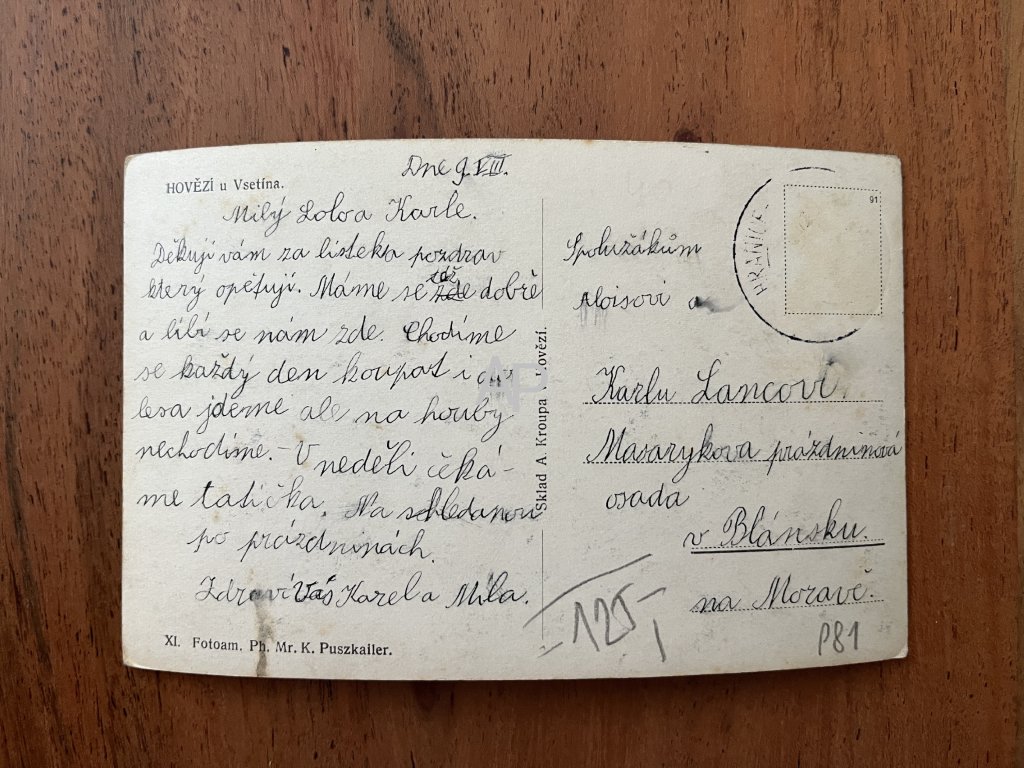 HOVĚZÍ u Vsetína.
Dne 9. VIII.
Milý Lolo a Karle.
Děkuji vám za lístek a pozdrav
který opětuji. Máme se zde dobře
a líbí se nám zde. Chodíme
se každý den koupat i do
lesa jdeme ale na houby
nechodíme. - V neděli čeká-
me tatíčka. Na shledanou
po prázdninách.
Zdraví Vás Karel a Míla.
XI. Fotoam. Ph. Mr. K. Puszkailer.
Sklad A. Kroupa Hovězí.
HRANICE
91
Spolužákům
Aloisovi a
Karlu Lancovi.
Masarykova prázdninová
osada
v Blánsku.
na Moravě.
125,-
P81